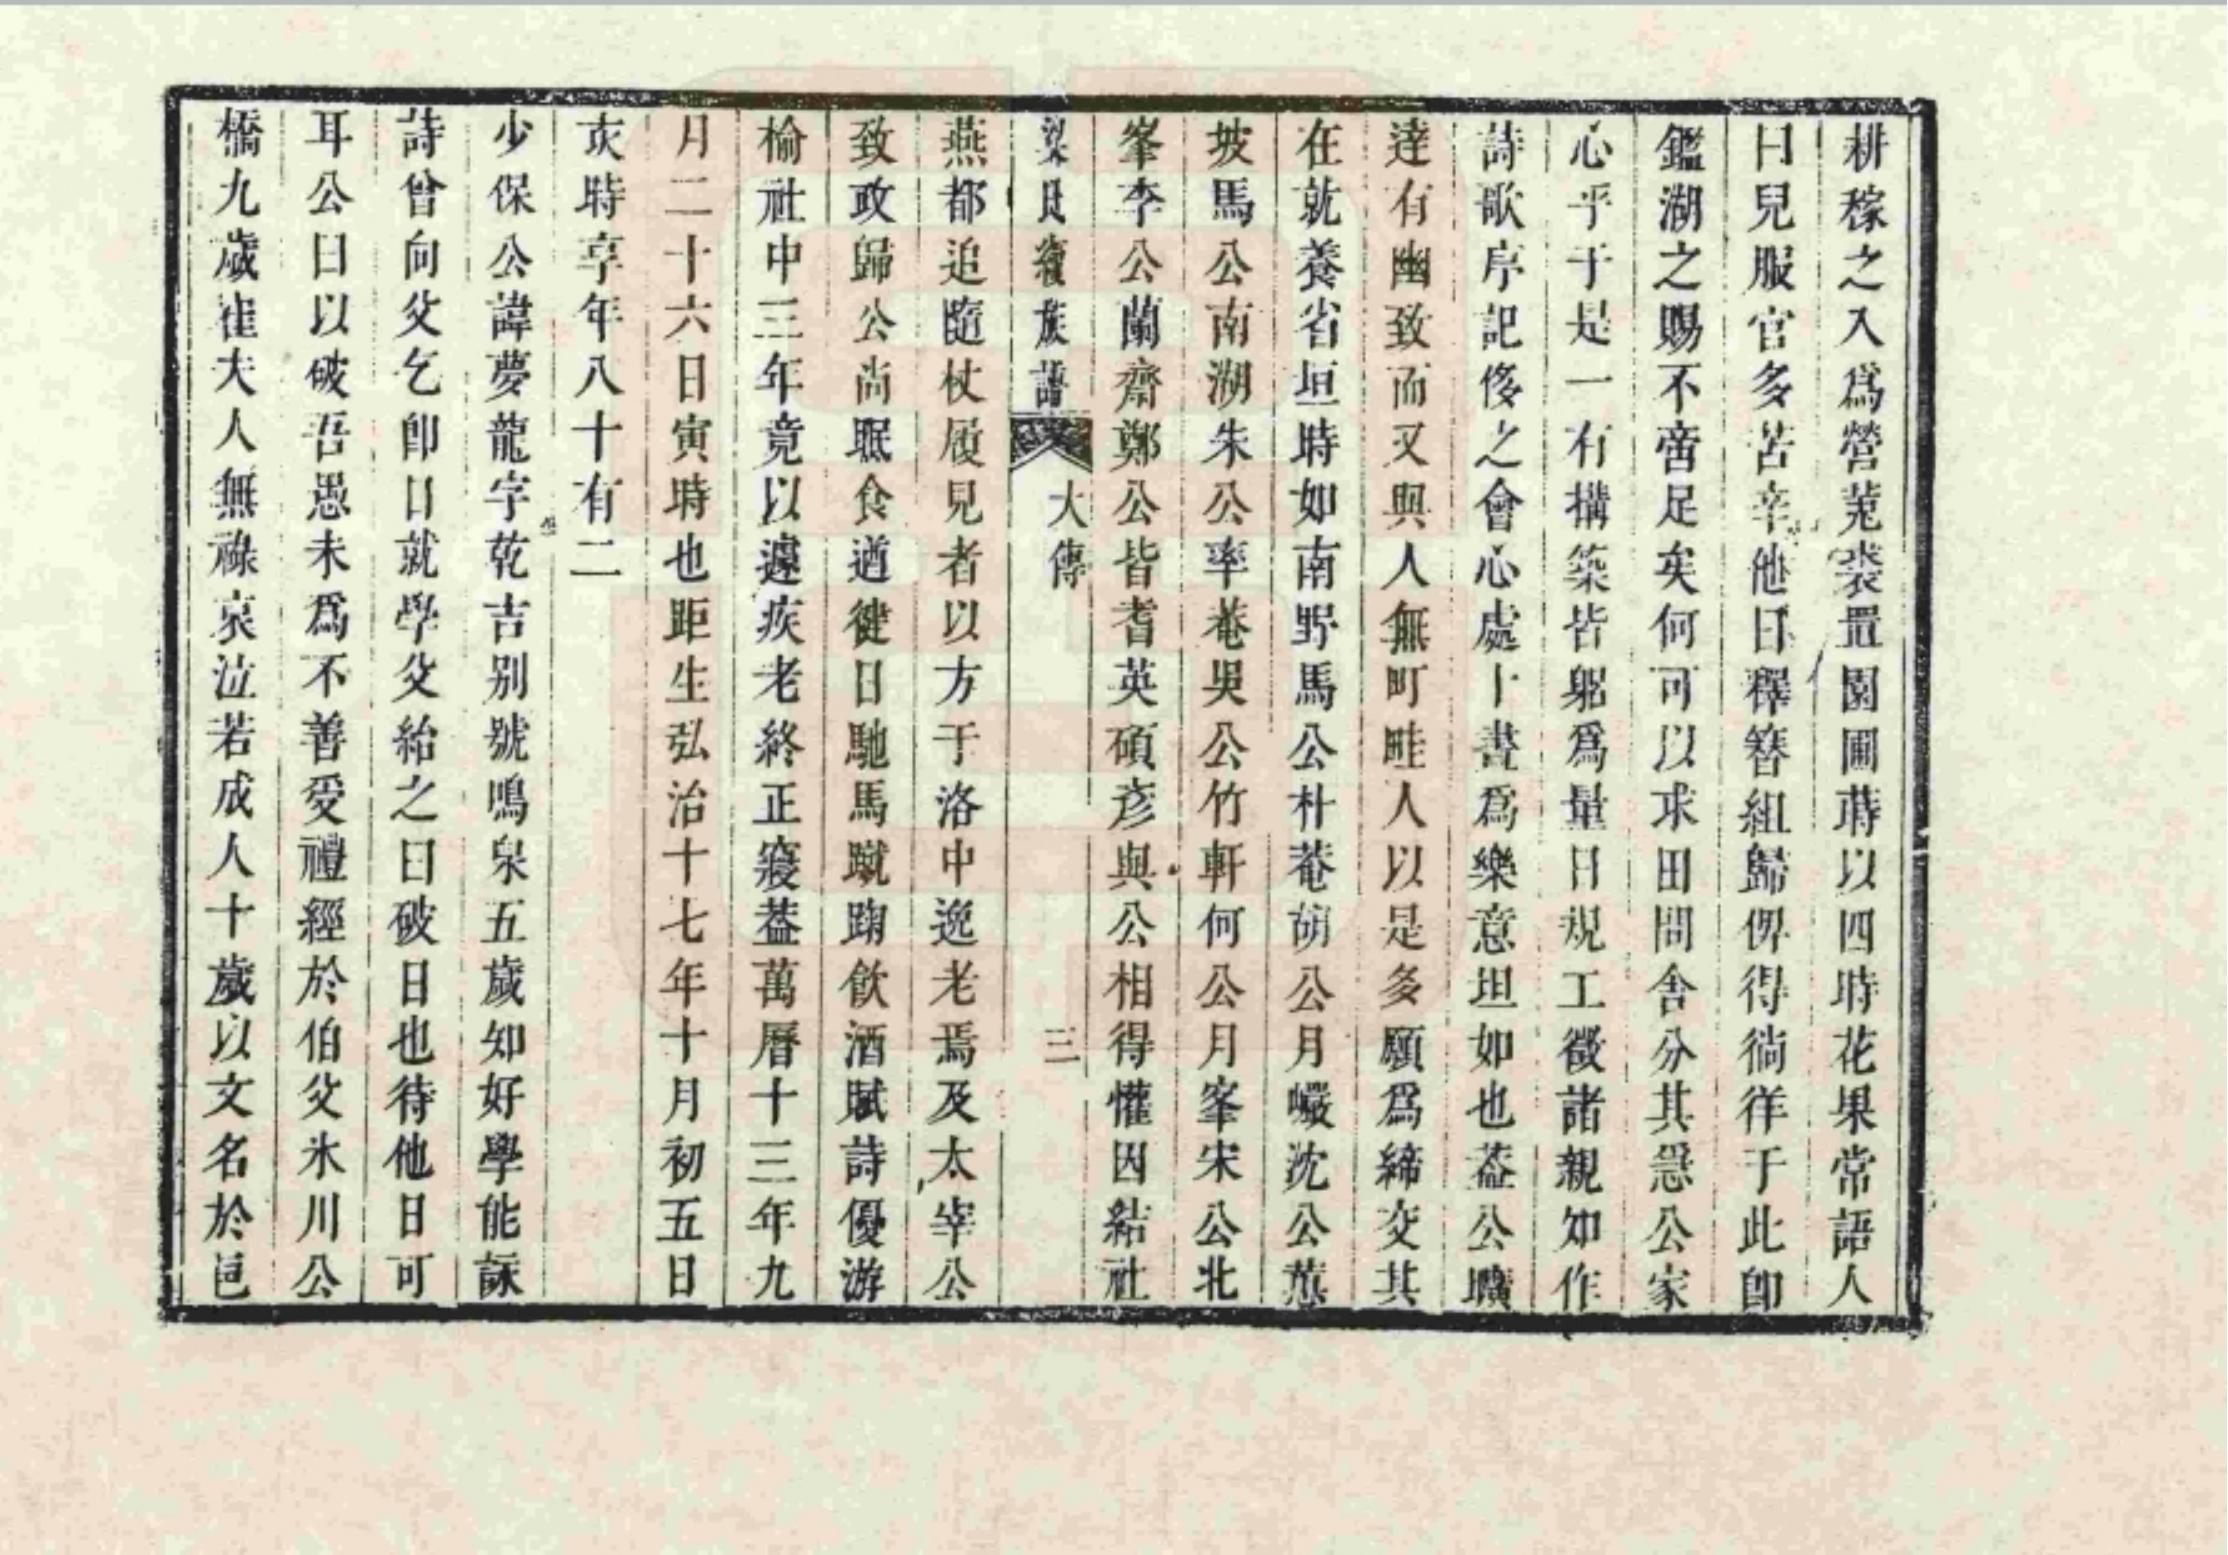 耕稼之入爲營菟裘置園圃蒔以四時花果常語人
曰兒服官多苦辛他日釋簪組歸俾得徜徉于此卽
鑑湖之賜不啻足矣何可以求田問舍分其慮公家
心乎于是一有搆築皆躬爲量日規工徵諸親知作
詩歌序記侈之會心處卜晝爲樂意坦如也葢公曠
達有幽致而又與人無町畦人以是多願爲締交其
在就養省垣時如南野馬公朴菴胡公月巖沈公蕉
坡馬公南湖朱公率菴吳公竹軒何公月峯宋公北
峯李公蘭齋鄭公皆耆英碩彥與公相得懽因結社
梁氏族譜 大傳 三
燕都追隨杖履見者以方于洛中逸老焉及太宰公
致政歸公尚眠食遒健日馳馬蹴踘飲酒賦詩優游
楡社中三年竟以遽疾老終正寢葢萬曆十三年九
月二十六日寅時也距生弘治十七年十月初五日
亥時享年八十有二
少保公諱夢龍字乾吉别號鳴泉五歲知好學能誦
詩曾向父乞卽日就學父紿之曰破日也待他日可
耳公曰以破吾愚未爲不善受禮經於伯父氷川公
橋九歲崔夫人無祿哀泣若成人十歲以文名於邑